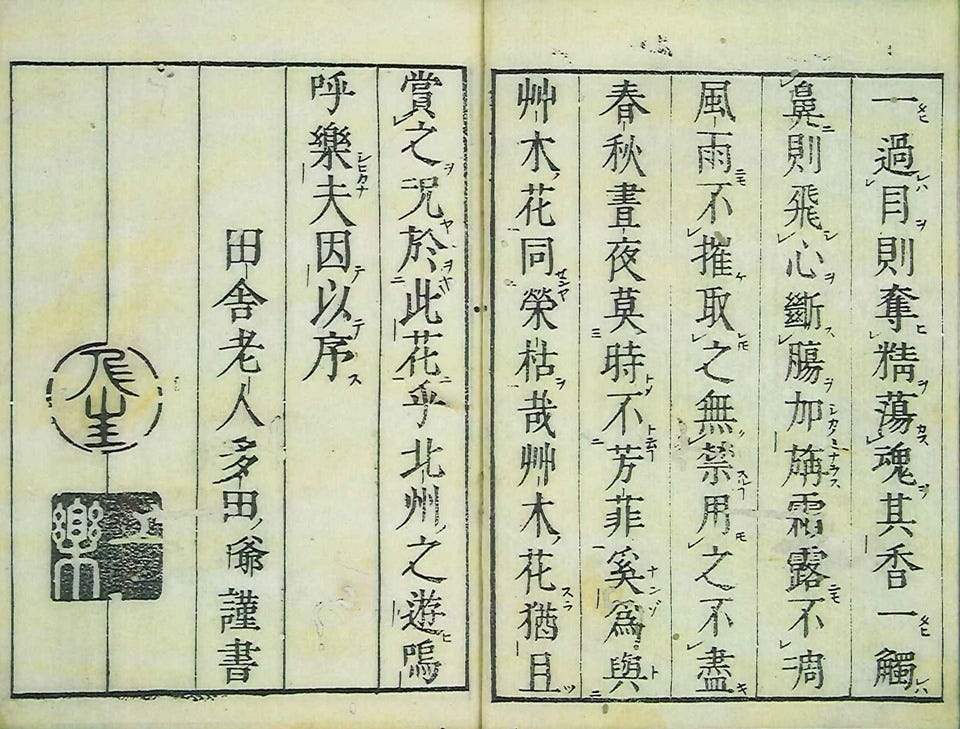 一過目則奪精蕩魂其香一觸
鼻則飛心斷膓加旃霜露不凋
風雨不摧取之無禁用之不盡
春秋晝夜莫時不芳菲奚爲與
艸木花同榮枯哉艸木花猶且
賞之况於此花乎北州之遊嗚
呼樂夫因以序
田舎老人多田爺謹書